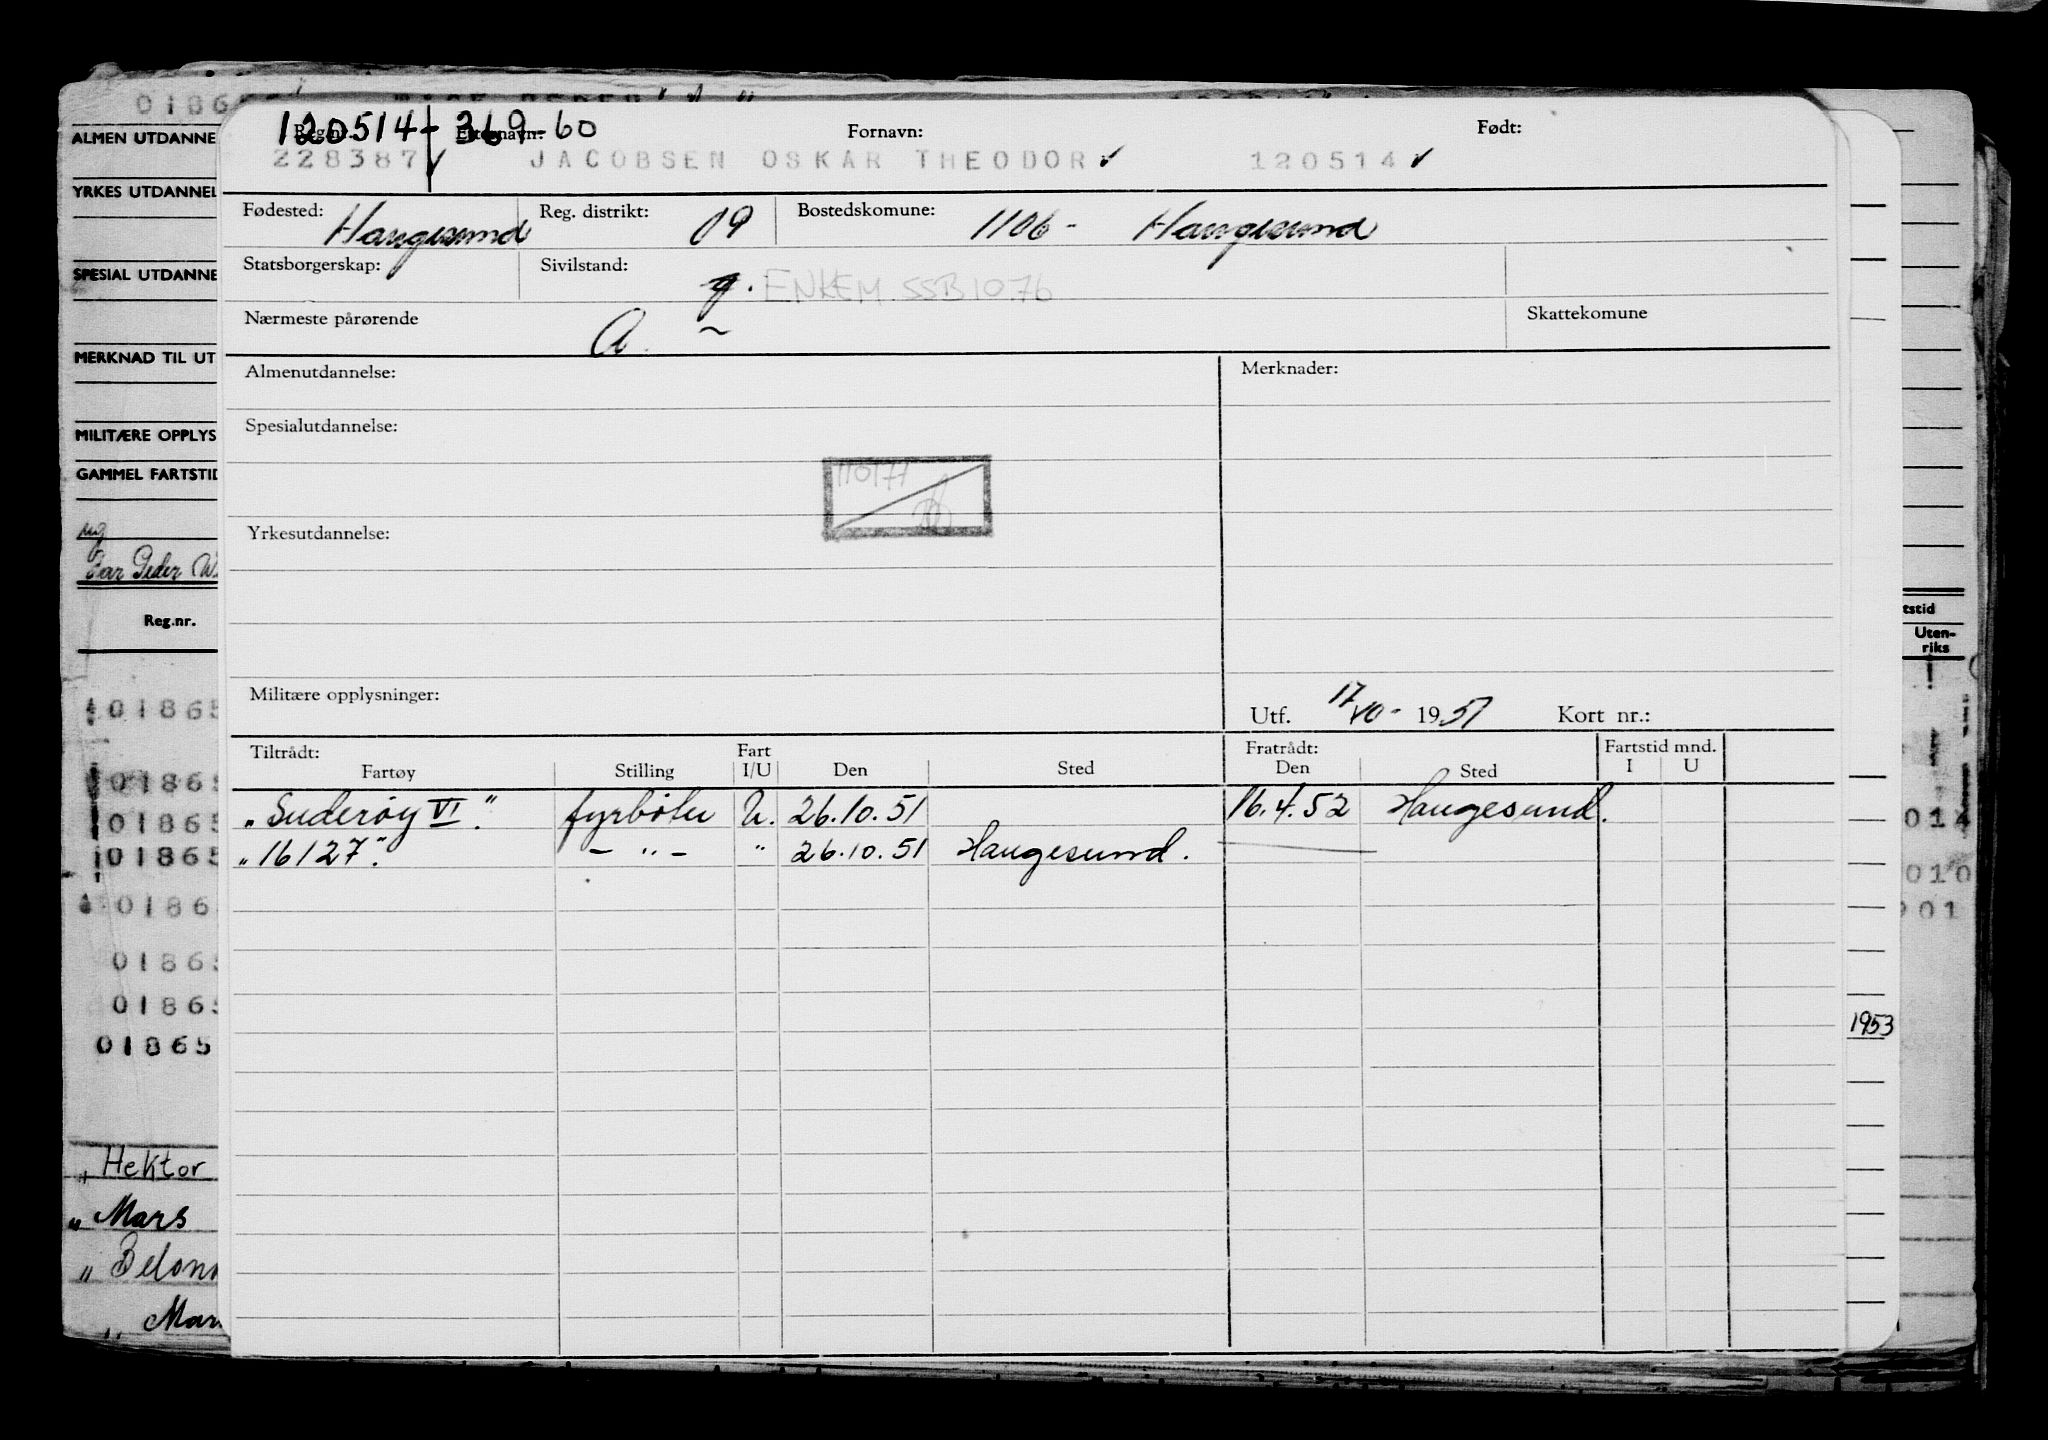 0186
120514+ 369-60
Reg.nr. Etternavn: Fornavn: Født:
228387 JACOBSEN OSKAR THEODOR ✓ 120514 ✓
Fødested: Haugesund Reg. distrikt: 09 Bostedskomune: 1106 - Haugesund
Statsborgerskap: Sivilstand: g. ENKEM SSB1076
Nærmeste pårørende A ~ Skattekomune
Almenutdannelse: Merknader:
Spesialutdannelse:
110177
Yrkesutdannelse:
Militære opplysninger:
Utf. 17/10 - 1951 Kort nr.:
Tiltrådt: Fart Fratrådt: Fartstid mnd.
Fartøy Stilling I/U Den Sted Den Sted I U
"Suderøy VI". fyrbøter U. 26.10.51 16.4.52 Haugesund.
"16127". - " - " 26.10.51 Haugesund.
ALMEN UTDANNE
YRKES UTDANNEL
SPESIAL UTDANNE
MERKNAD TIL UT
MILITÆRE OPPLYS
GAMMEL FARTSTID
ug
Peder
Reg.nr.
01865
01865
01865
01865
0186
01865
01865
01865
" Hektor
" Mars
" Belon
" Mar
tstid
Uten-
riks
014
010
901
1953